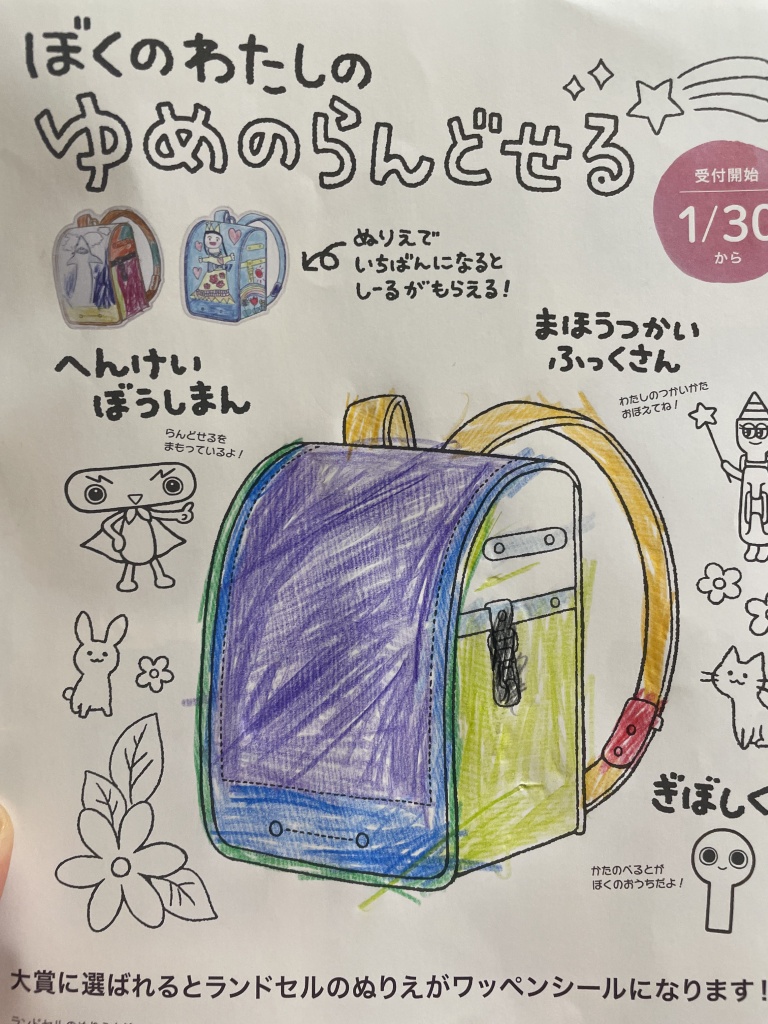 ぼくのわたしの
ゆめのらんどせる
受付開始
1/30
から
ぬりえで
いちばんになると
しーるがもらえる!
まほうつかい
ふっくさん
わたしのつかいかた
おぼえてね!
へんけい
ぼうしまん
らんどせるを
まもっているよ!
ぎぼしく
かたのべるとが
ぼくのおうちだよ!
大賞に選ばれるとランドセルのぬりえがワッペンシールになります!